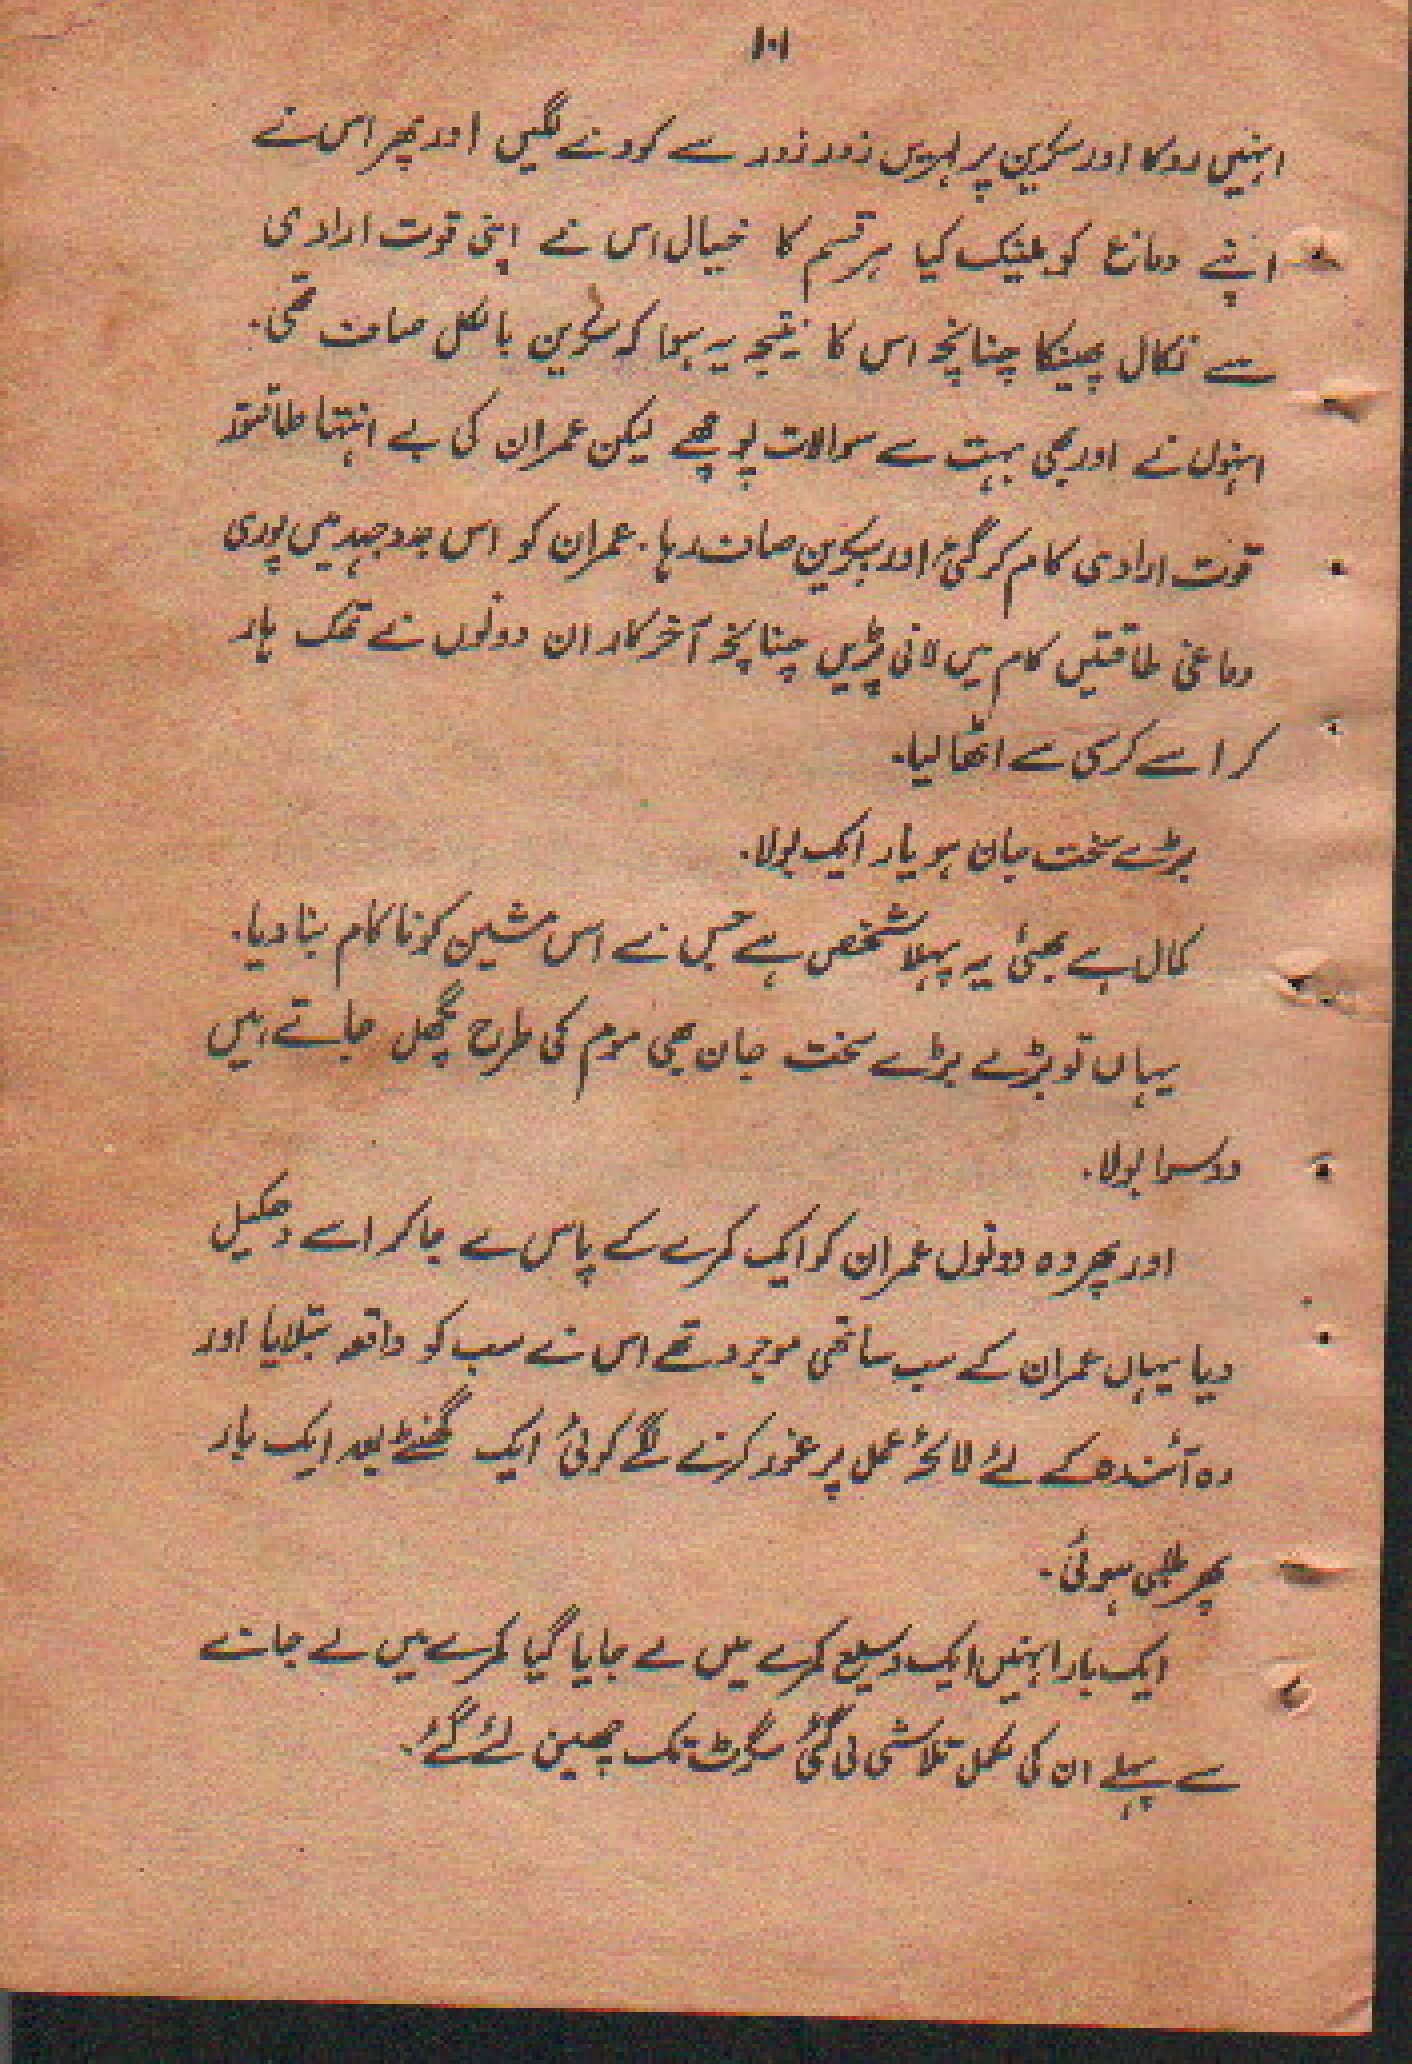 ۱۰۱
انہیں روکا اور سکرین پر لہریں زور زور سے کودنے لگیں اور پھر اس نے
اپنے دماغ کو بلینک کیا ہر قسم کا خیال اس نے اپنی قوت ارادی
سے نکال پھینکا چنانچہ اس کا نتیجہ یہ ہوا کہ سکرین بالکل صاف تھی۔
انہوں نے اور بھی بہت سے سوالات پوچھے لیکن عمران کی بے انتہا طاقتور
قوت ارادی کام کر گئی اور سکرین صاف رہا۔ عمران کو اس جدوجہد میں پوری
دماغی طاقتیں کام میں لانی پڑیں چنانچہ آخر کار ان دونوں نے تھک ہار
کر اسے کرسی سے اٹھا لیا۔
بڑے سخت جان ہو یار ایک بولا۔
کمال ہے بھئی یہ پہلا شخص ہے جس نے اس مشین کو ناکام بنا دیا۔
یہاں تو بڑے بڑے سخت جان بھی موم کی طرح پگھل جاتے ہیں
دوسرا بولا۔
اور پھر وہ دونوں عمران کو ایک کمرے کے پاس لے جا کر اسے دھکیل
دیا یہاں عمران کے سب ساتھی موجود تھے اس نے سب کو واقعہ بتلایا اور
وہ آئندہ کے لئے لائحۂ عمل پر غور کرنے لگے کوئی ایک گھنٹے بعد ایک بار
پھر طلبی ہوئی۔
ایک بار انہیں ایک وسیع کمرے میں لے جایا گیا کمرے میں لے جانے
سے پہلے ان کی مکمل تلاشی لی گئی سگرٹ تک چھین لئے گئے۔